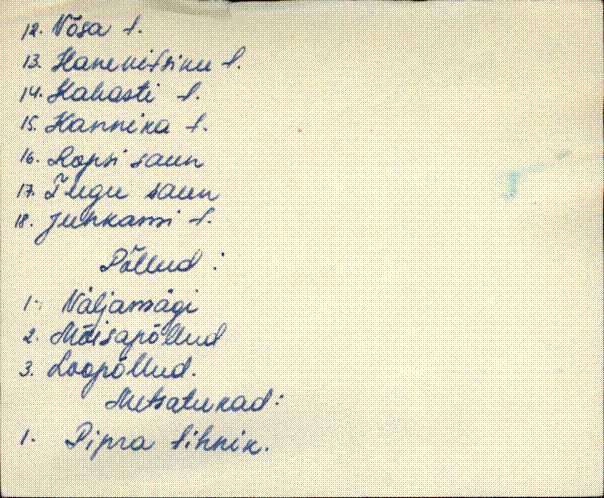 12. Nõsa t.
13. Hanekitsiku t.
14. Kabasti t.
15. Hannika t.
16. Ropsi saun
17. saun
18. t.
Põllud:
1. Näljamägi
2. Mõisapõllud
3. Loopõllud.
Metsatukad:
1. Pipra tihnik.